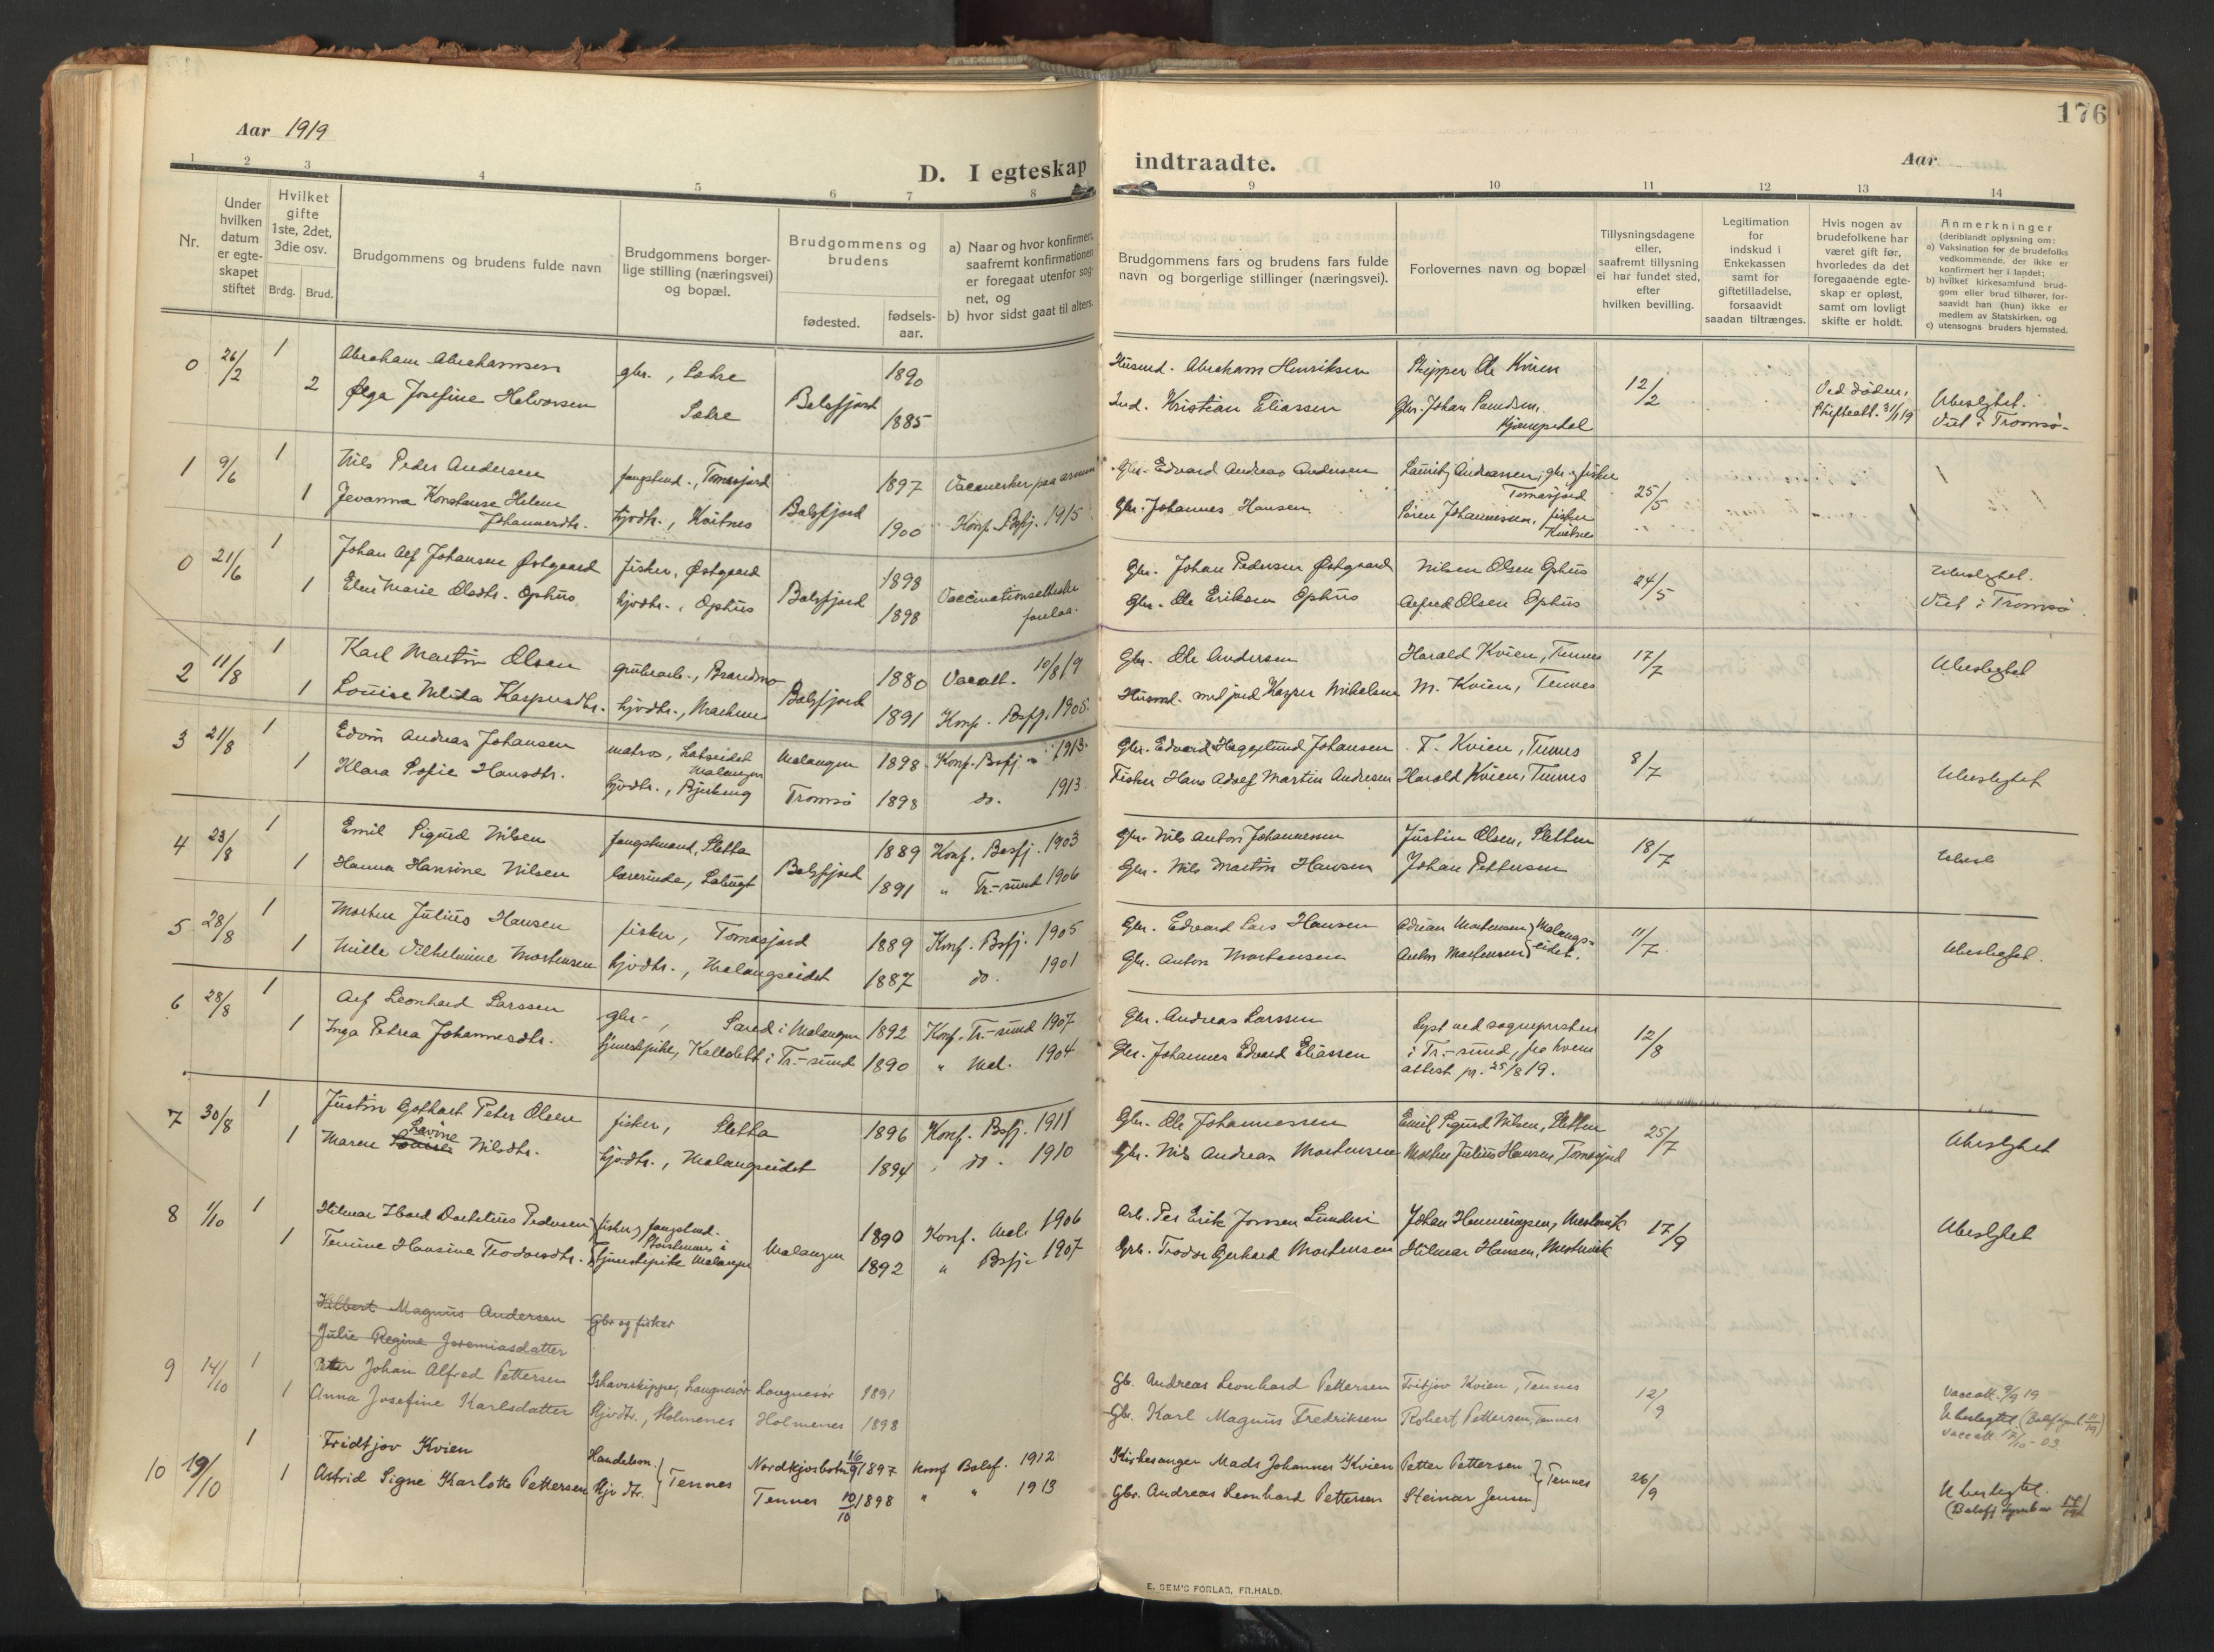 176
Aar 1919
Aar
D. I egteskap indtraadte.
1 2 3 4 5 6 7 8 9 10 11 12 13 14
Nr.
Under hvilken datum er egteskapet stiftet
Hvilket gifte 1ste, 2det, 3die osv.
Brdg. Brud.
Brudgommens og brudens fulde navn
Brudgommens borgerlige stilling (næringsvei) og bopæl.
Brudgommens og brudens
fødested. fødselsaar.
a) Naar og hvor konfirmert, saafremt konfirmationen er foregaat utenfor sognet, og
b) hvor sidst gaat til alters.
Brudgommens fars og brudens fars fulde navn og borgerlige stillinger (næringsvei).
Forlovernes navn og bopæl
Tillysningsdagene eller, saafremt tillysning ei har fundet sted, efter hvilken bevilling.
Legitimation for indskud i Enkekassen samt for giftetilladelse, forsaavidt saadan tiltrænges.
Hvis nogen av brudefolkene har været gift før, hvorledes da det foregaaende egteskap er opløst, samt om lovligt skifte er holdt.
Anmerkninger
(deriblandt oplysning om:
a) Vaksination for de brudefolks vedkommende, der ikke er konfirmert her i landet;
b) hvilket kirkesamfund brudgom eller brud tilhører, forsaavidt han (hun) ikke er medlem av Statskirken, og
c) utensogns bruders hjemsted.
0 26/2 1 Abraham Abrahamsen gbr., Sakre 1890 Husmd. Abraham Henriksen Skipper Ole Kvien 12/2 Ved døden,
2 Olga Josefine Halvorsen Sakre Balsfjord 1885 Ind. Kristian Eliassen Gbr. Johan Kjempedal Skifteatt. 31/1 19 Ubeslegtet. Viet i Tromsø.
1 9/6 1 Nils Peder Andersen fangstmd., Tomasjord 1897 Gbr. Edvard Andreas Andersen Lauritz Andreassen, gbr. og fisker Tomasjord 25/5
1 Jevanna Konstanse Helene Johannesdtr. hjvdtr., Kvitnes Balsfjord 1900 Konf. Bsfj. 1915 Gbr. Johannes Hansen Søren Johannessen, fisker Kvitnes
0 21/6 1 Johan Alf Johansen Østgaard fisker, Østgaard 1898 Vaccinationsattester Gbr. Johan Pedersen Østgaard Nilsen Olsen Ophus 24/5 Ubeslegtet.
1 Elen Marie Olsdtr. Ophus hjvdtr., Ophus Balsfjord 1898 forelaa. Gbr. Ole Eriksen Ophus Alfred Olsen Ophus Viet i Tromsø.
2 11/8 1 Karl Martin Olsen grubearb., Brandmo 1880 Vacatt. 10/8 19 Gbr. Ole Andersen Harald Kvien, Tennes 17/7 Ubeslegtet
1 Louise Nilida Kaspersdtr. hjvdtr., Balsfjord 1891 Konf. Bsfj. 1905 Husmd. med jord Kasper Mikelsen M. Kvien, Tennes
3 21/8 1 Edvin Andreas Johansen matros, Malangen Malangen 1898 Konf. Bsfj. 1913 Gbr. Edvard Heggelund Johansen F. Kvien, Tennes 8/7
1 Klara Sofie Hansdtr. hjvdtr., Bjerkeng Tromsø 1898 do. 1913 Fisker Hans Adolf Martin Andresen Harald Kvien, Tennes Ubeslegtet
4 23/8 1 Emil Sigurd Nilsen fangstmand, Sletta 1889 Konf. Bsfj. 1903 Gbr. Nils Anton Johannessen Justin Olsen, Sletten 18/7
1 Hanna Hansine Nilsen lærerinde, Balsfjord 1891 " Tr.-sund 1906 Gbr. Nils Martin Hansen Johan Pettersen Ubesl
5 28/8 1 Morten Julius Hansen fisker, Tomasjord 1889 Konf. Bsfj. 1905 Gbr. Edvard Lars Hansen Adrian Mortensen 11/7
1 Mille Vilhelmine Mortensen hjvdtr., Malangseidet 1887 do. 1901 Gbr. Anton Mortensen Anton Mortensen Malangseidet. Ubeslegtet.
6 28/8 1 Alf Leonhard Larssen gbr., i Malangen 1892 Konf. Tr.-sund 1907 Gbr. Andreas Larssen Lyst ved sognepresten 12/8
1 Inga Petrea Johannesdtr. tjenestepike, Kattslett i Tr.-sund 1890 " Mal. 1904 Gbr. Johannes Edvard Eliassen i Tr.-sund, fra hvem attest pr. 25/8 19.
7 30/8 1 Justin Gothart Peter Olsen fisker, Sletta 1896 Konf. Bsfj. 1911 Gbr. Ole Johannessen Emil Sigurd Nilsen, Sletten 25/7
1 Maren Lavine Louise Nilsdtr. hjvdtr., Malangseidet 1894 do. 1910 Gbr. Nils Andreas Mortensen Morten Julius Hansen, Tomasjord Ubeslegtet
8 1/10 1 Hilmar Pedersen fisker og fangstmd. 1890 Konf. Mal. 1906 Arb. Per Erik Johan Henningsen, Mestervik 17/9 Ubeslegtet
1 Tenine Hansine Teodorsdtr. tjenestepike Malangen Malangen 1892 " Bsfj. 1907 Grb. Teodor Gerhard Mortensen Hilmar Hansen, Mestervik
Hilbert Magnus Andersen Gbr og fisker
Julie Regine Jeremiasdatter
9 14/10 1 Peter Johan Alfred Pettersen Ishavsskipper, Laugnesør Laugnesør 1891 Gb. Andreas Leonhard Pettersen Fritjov Kvien, Tennes 12/9 Vaccatt. 9/9 19
1 Anna Josefine Karlsdatter Hjvdtr., Holmenes Holmenes 1898 Gbr. Karl Magnus Fredriksen Robert Pettersen, Tennes Ubeslegtet
10 19/10 1 Fridtjov Kvien Handelsm. Nordkjosbotn 16/9 1897 Konf Balsf. 1912 Kirkesanger Mads Johannes Kvien Petter Pettersen 26/9
1 Astrid Signe Karlotte Pettersen Hjv dtr. Tennes Tennes 10/10 1898 " " 1913 Gbr. Andreas Leonhard Pettersen Steinar Jensen Tennes Ubeslegtet.
E. SEM'S FORLAG, FR.HALD.